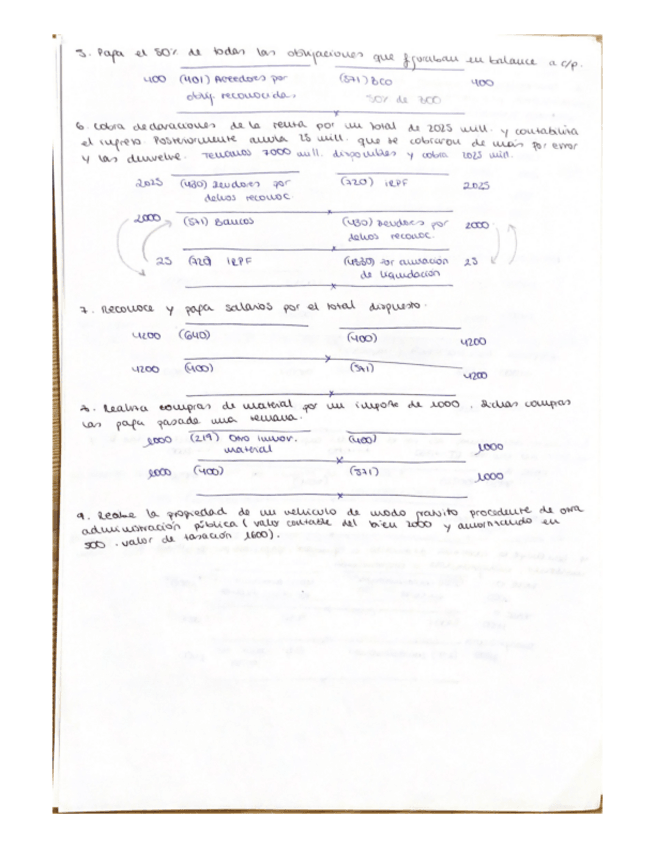 5. Papa el 50% de todas las obligaciones que figuraban en balance a c/p.
400 (401) Acreedores por (571) BCO 400
oblig. reconocida. 50% de 800
6. Cobra declaraciones de la renta por un total de 2025 mill. y contabiliza
el ingreso. Posteriormente anula 25 mill. que se cobraron de más por error
y las devuelve. Tenamos 7000 mill. disponibles y cobra 2025 mill.
2025 (430) Deudores por (720) IRPF 2025
dchos reconoc.
2000 (571) Bancos (430) Deudores por 2000
dchos reconoc.
25 (720) IRPF (4330) Por anulación 25
de liquidación
7. Reconoce y papa salarios por el total dispuesto.
4200 (640) (400) 4200
4200 (400) (571) 4200
8. Realiza compras de material por un importe de 1000. Dichas compras
las papa pasada una semana.
1000 (219) Otro inmov. (400) 1000
material
1000 (400) (571) 1000
9. Recibe la propiedad de un vehículo de modo gratuito procedente de otra
administración pública (valor contable del bien 2000 y amortizado en
500. valor de tasación 1600).